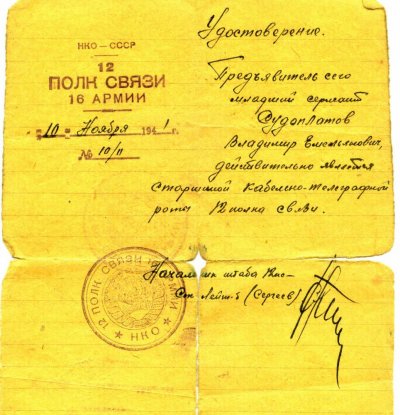 НКО — СССР
12
ПОЛК СВЯЗИ
16 АРМИИ
"10" Ноября 1941 г.
№ 10/п
Удостоверение.
Предъявитель сего
младший сержант
Судоплатов
Владимир Емельянович,
действительно является
старшиной Кабельно-телеграфной
роты 12 полка связи.
Начальник штаба
Лейт-т (Сергеев)
12 ПОЛК СВЯЗИ 16 АРМИИ
★ НКО ★